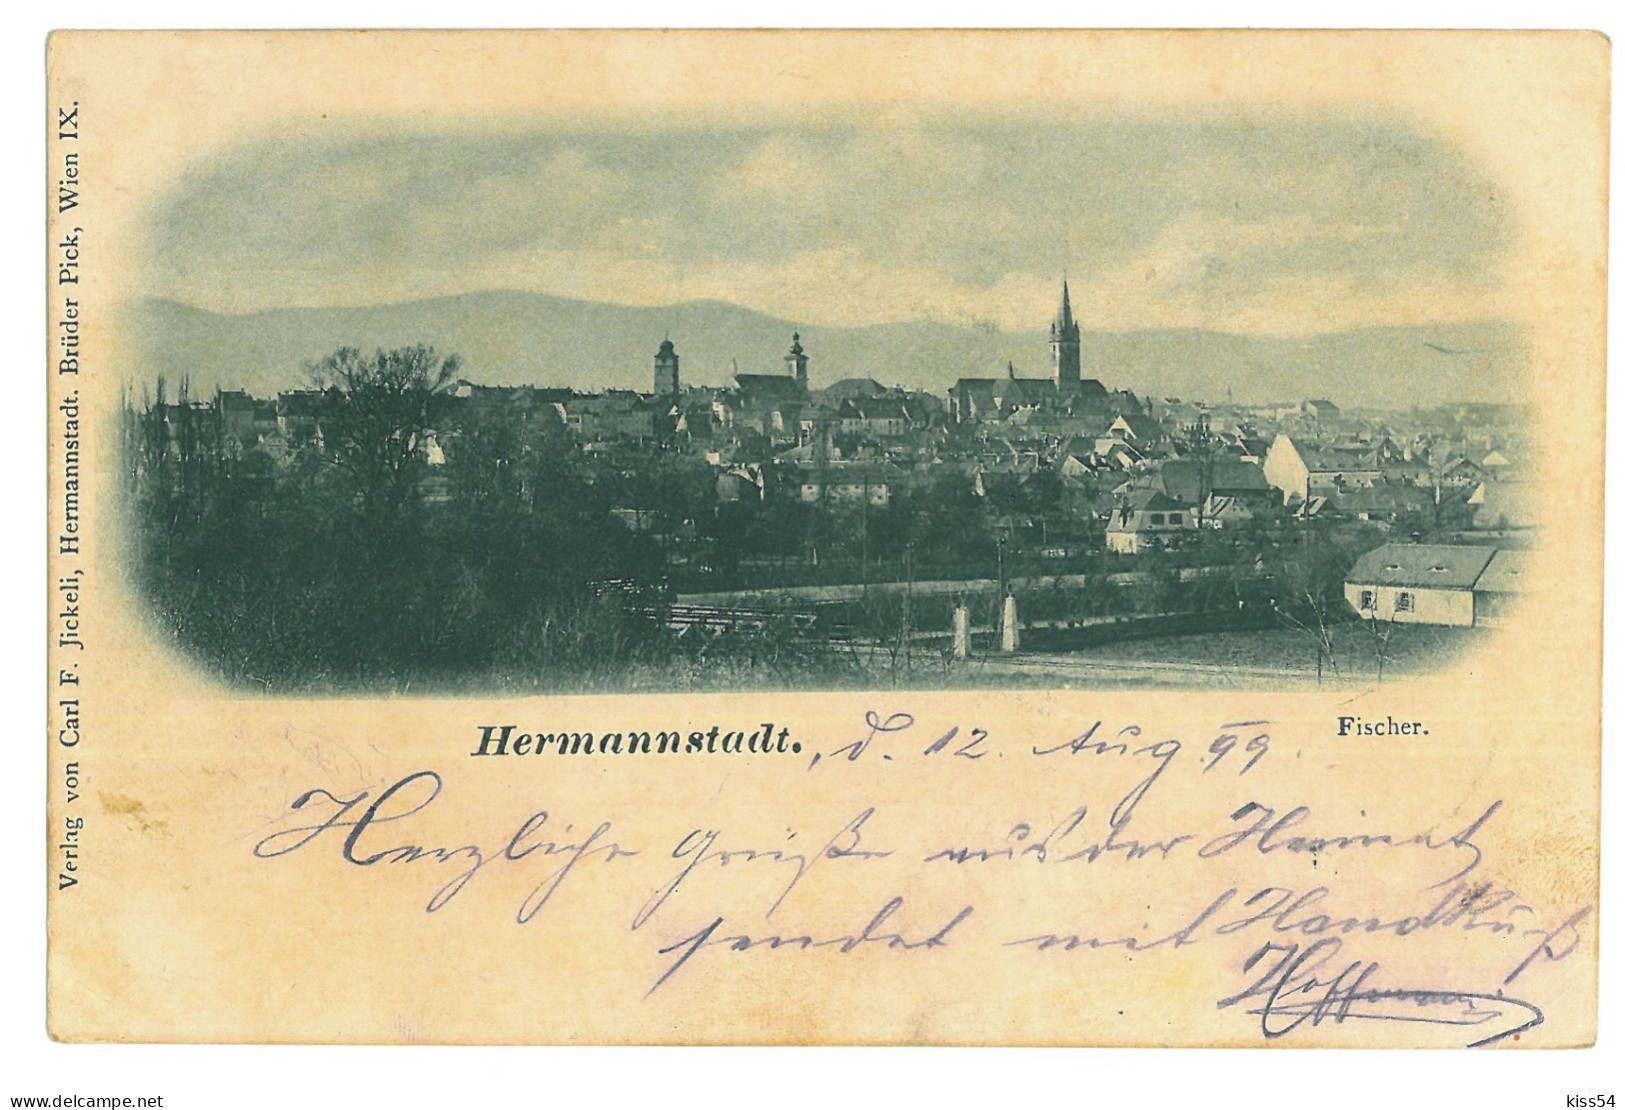 Verlag von Carl F. Jickeli, Hermannstadt. Brüder Pick, Wien IX.
Hermannstadt., d. 12. Aug. 99.
Fischer.
Herzliche Grüße aus der Heimat
sendet mit Handkuß
Hoffmann
www.delcampe.net
kiss54